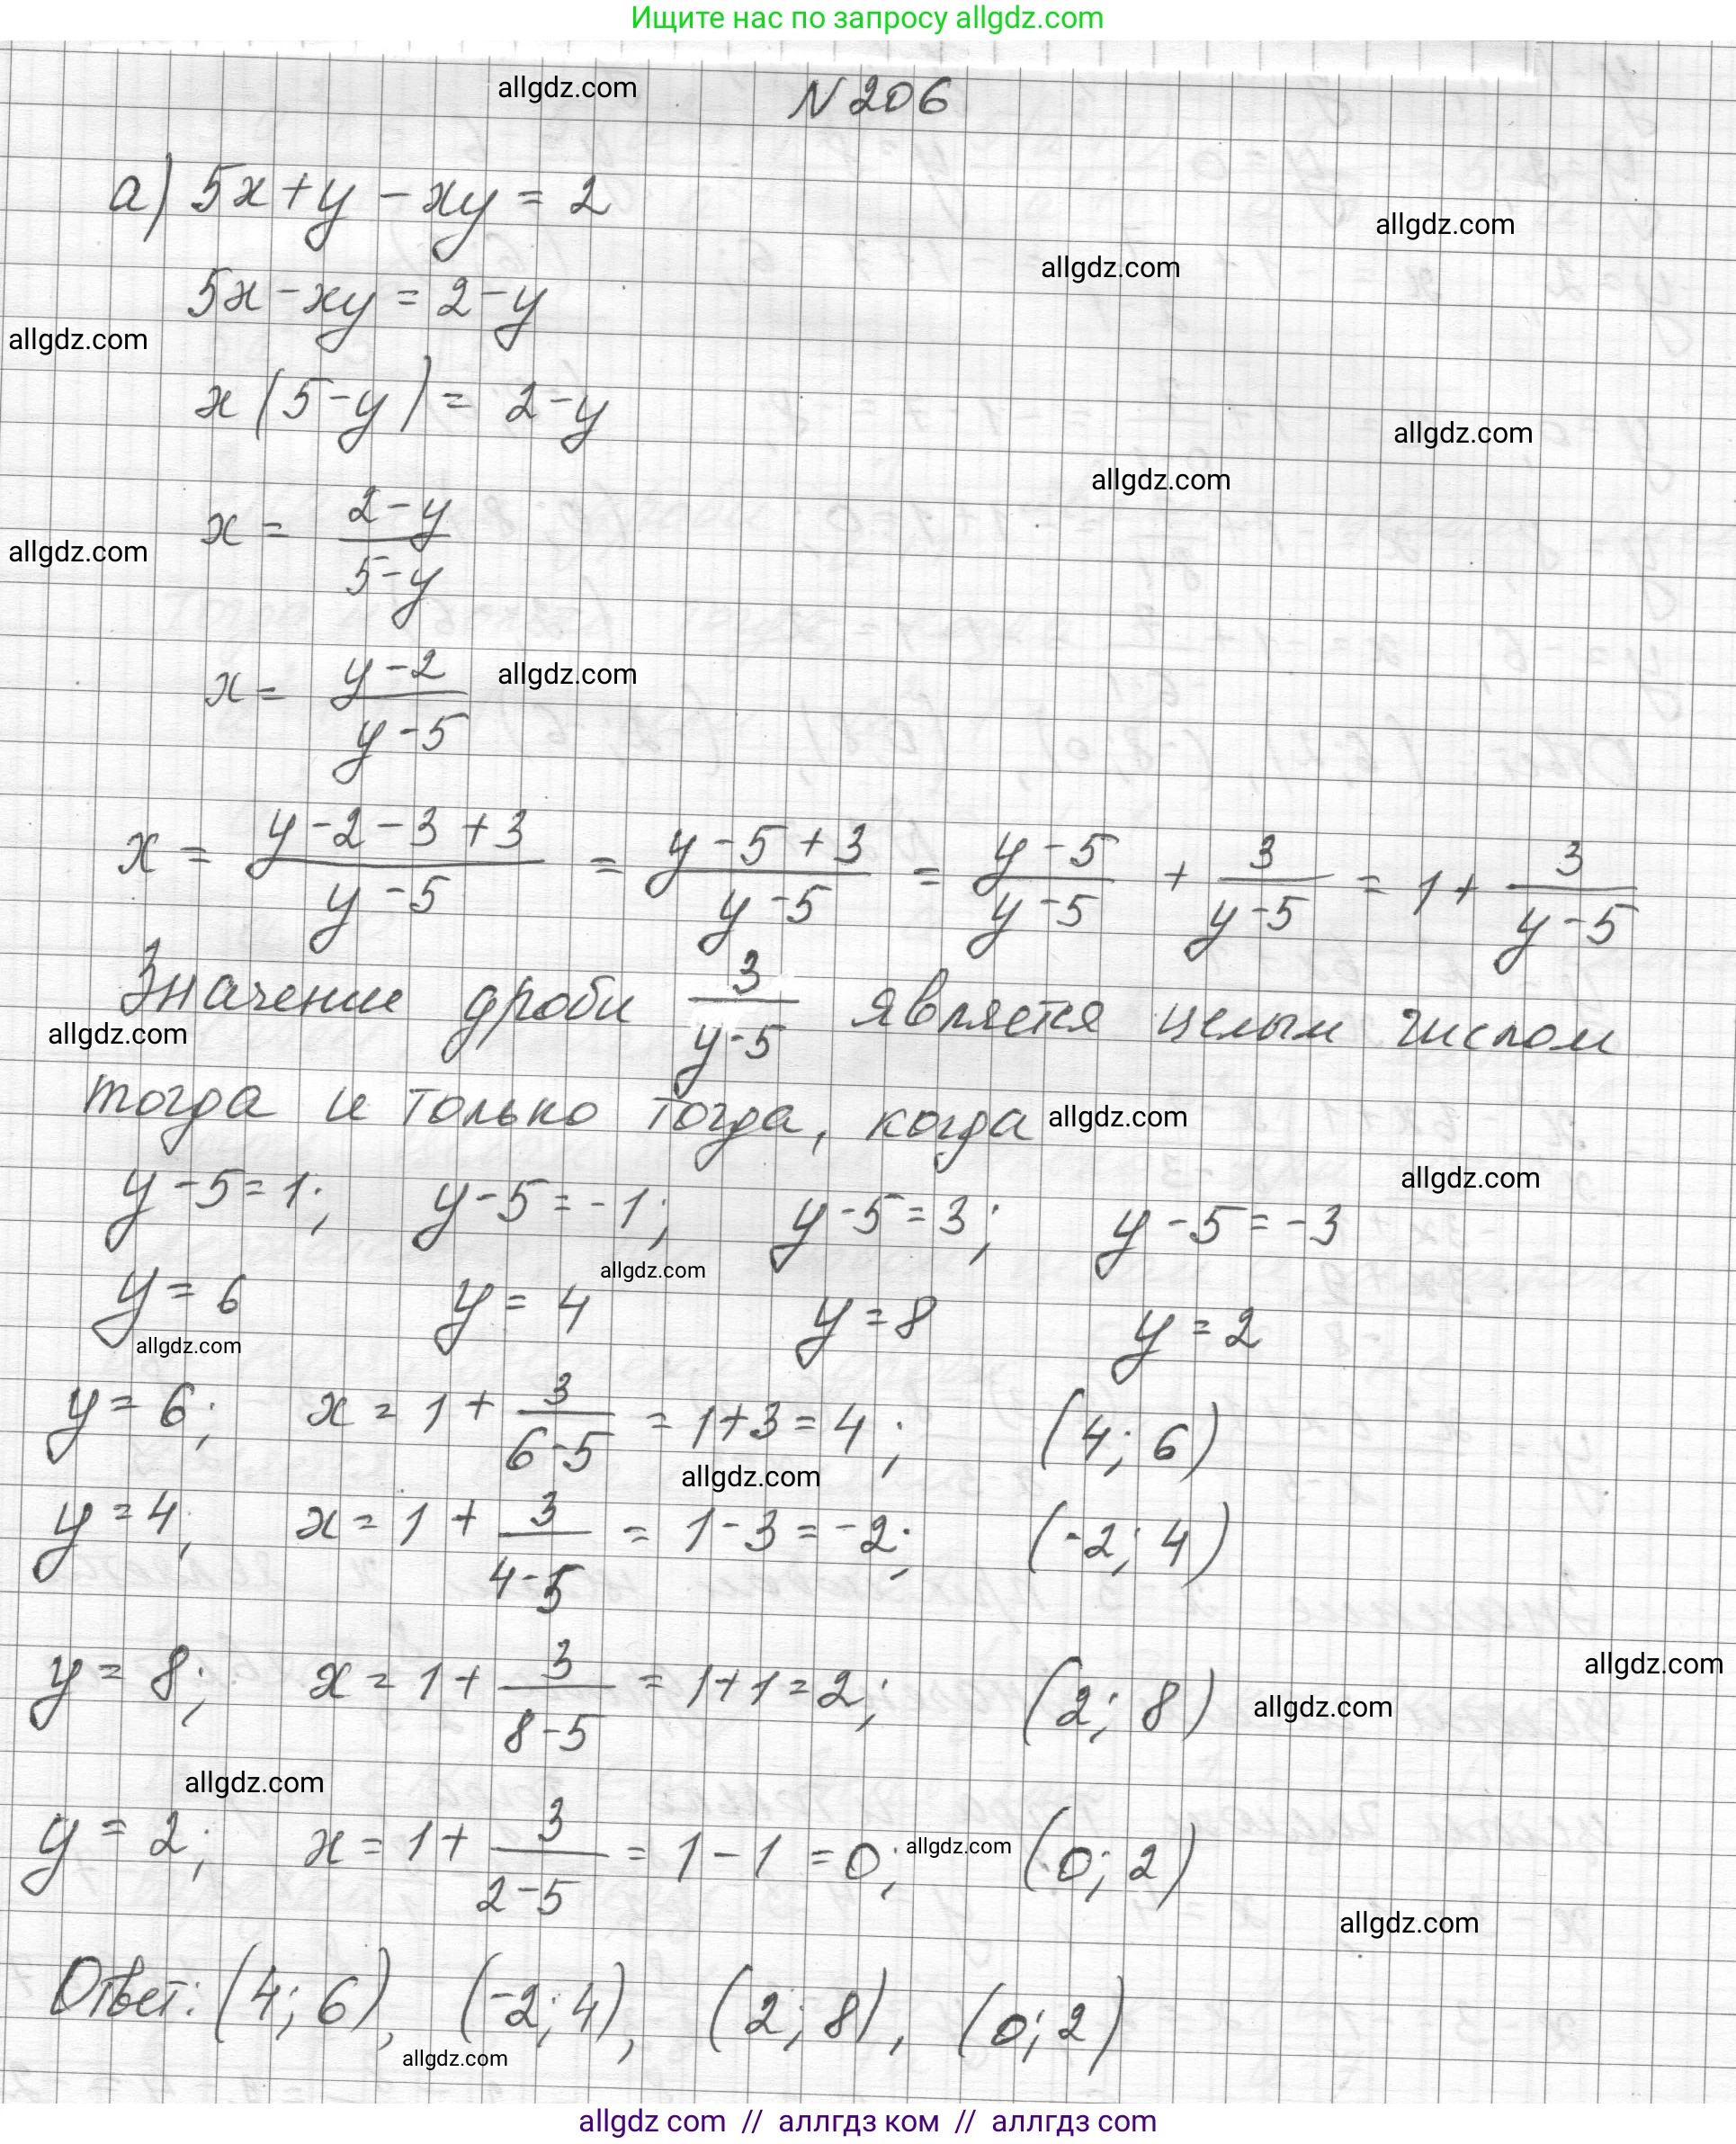 Ищите нас по запросу allgdz.com
allgdz.com N 206
а) 5x + y - xy = 2
allgdz.com
allgdz.com
5x - xy = 2 - y
allgdz.com
x(5 - y) = 2 - y
allgdz.com
allgdz.com
x = (2 - y)/(5 - y)
allgdz.com
x = (y - 2)/(y - 5) allgdz.com
x = (y - 2 - 3 + 3)/(y - 5) = (y - 5 + 3)/(y - 5) = (y - 5)/(y - 5) + 3/(y - 5) = 1 + 3/(y - 5)
Значение дроби 3/(y - 5) является целым числом
allgdz.com
тогда и только тогда, когда allgdz.com
allgdz.com
y - 5 = 1; y - 5 = -1; y - 5 = 3; y - 5 = -3
allgdz.com
y = 6 y = 4 y = 8 y = 2
allgdz.com
y = 6; x = 1 + 3/(6 - 5) = 1 + 3 = 4; (4; 6)
allgdz.com
y = 4; x = 1 + 3/(4 - 5) = 1 - 3 = -2; (-2; 4)
allgdz.com
y = 8; x = 1 + 3/(8 - 5) = 1 + 1 = 2; (2; 8) allgdz.com
allgdz.com
y = 2; x = 1 + 3/(2 - 5) = 1 - 1 = 0; allgdz.com (0; 2)
allgdz.com
Ответ: (4; 6), (-2; 4), (2; 8), (0; 2)
allgdz.com
allgdz com // аллгдз ком // аллгдз com